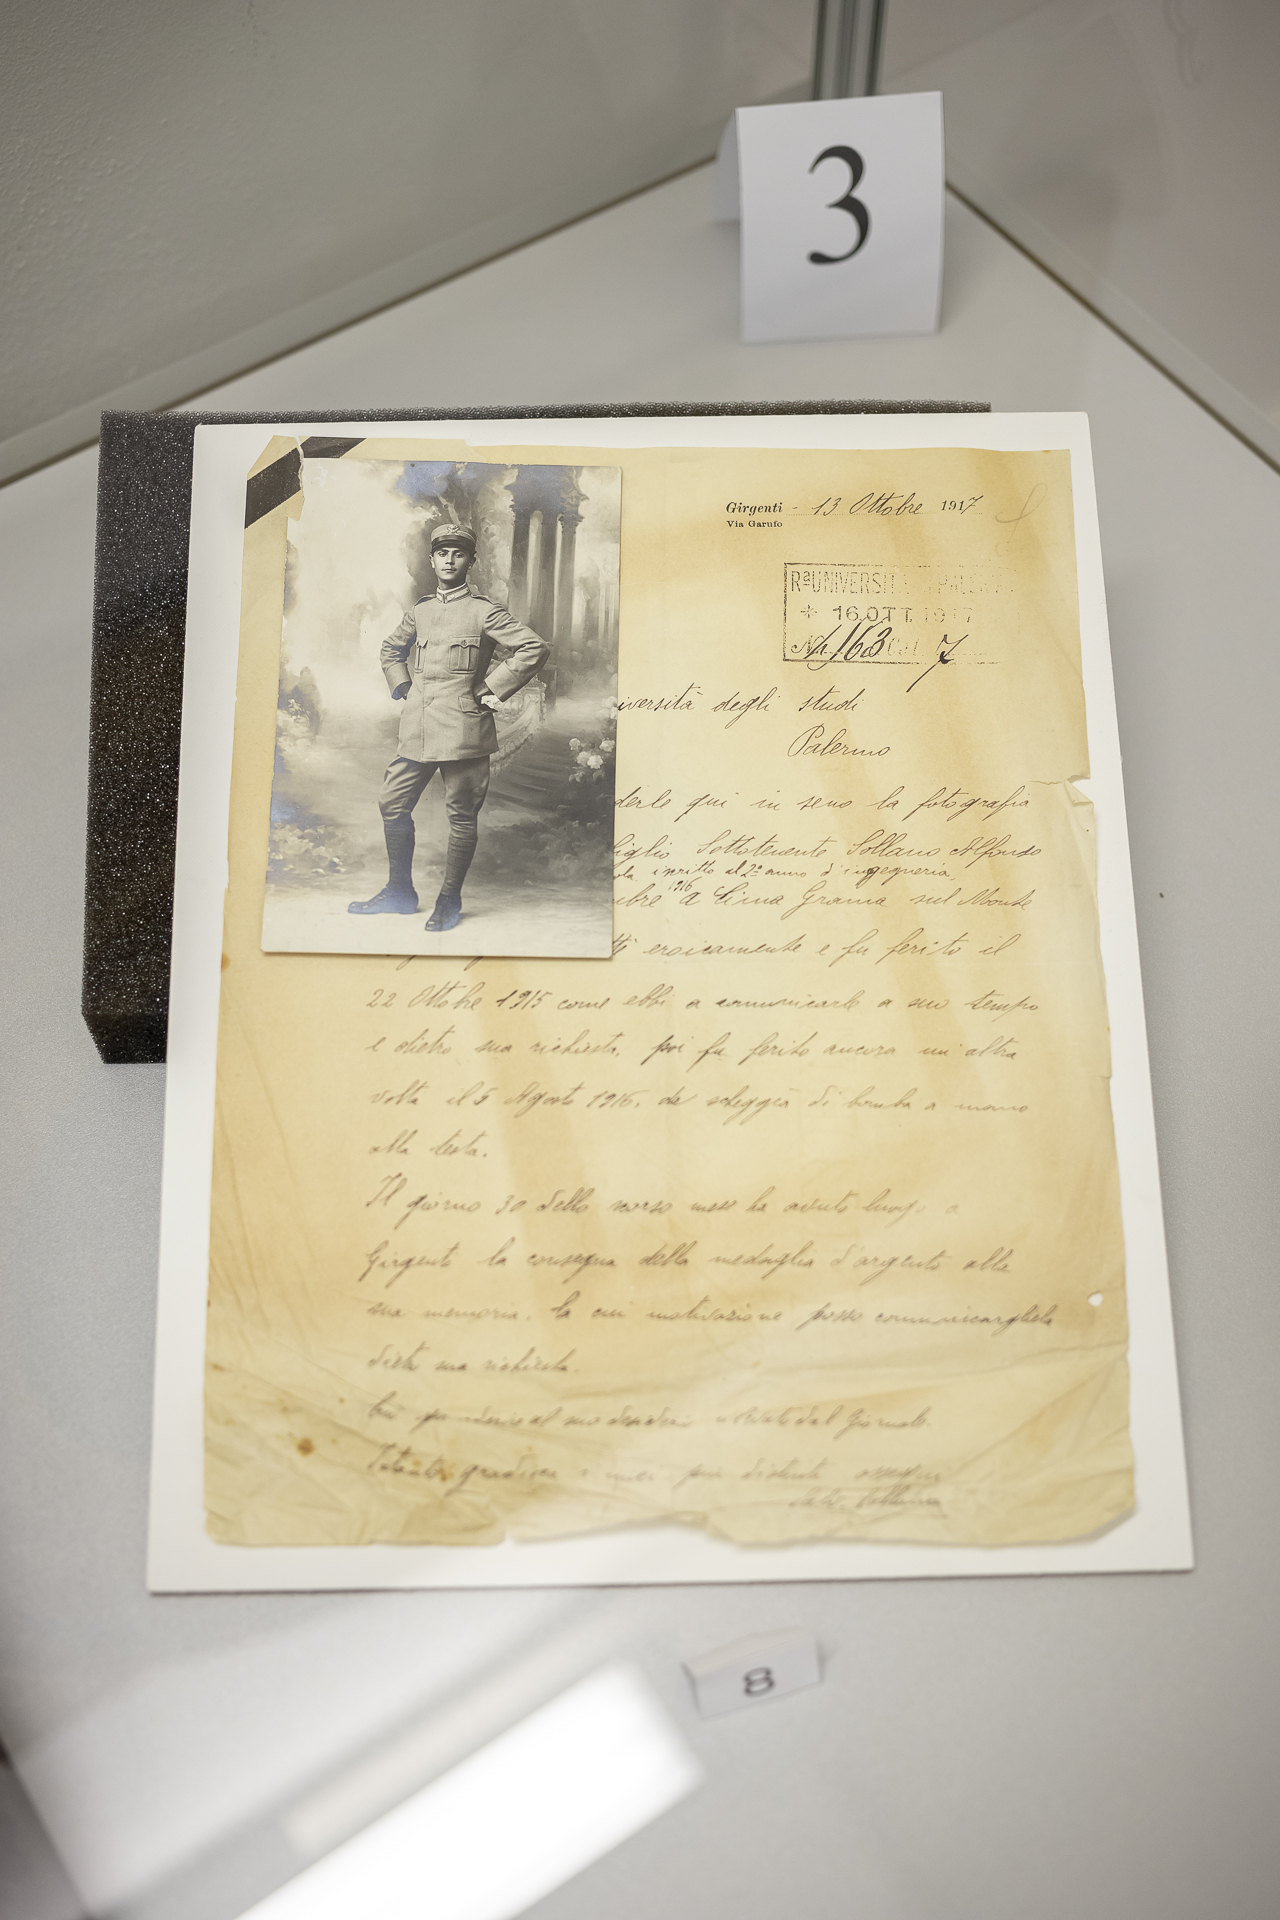 3
Girgenti - 13 Ottobre 1917
Via Garufo
Rª UNIVERSIT
* 16 OTT 1917
163 7
iversità degli studi
Palermo
derle qui in seno la fotografia
figlio Sottotenente Sollano Alfonso
iscritto al 2º anno d'ingegneria,
1916
mbre a Cima Grama sul Monte
eroicamente e fu ferito il
22 Ottobre 1915 come ebbi a comunicarle a suo tempo
e dietro sua richiesta, poi fu ferito ancora un'altra
volta il 5 Agosto 1916, da scheggia di bomba a mano
alla testa.
Il giorno 30 dello scorso mese ha avuto luogo a
Girgenti la consegna della medaglia d'argento alla
sua memoria, la cui motivazione posso comunicarghela
dietro sua richiesta.
al suo desiderio dal Giornale.
Intanto gradisca i miei più distinti ossequi
8